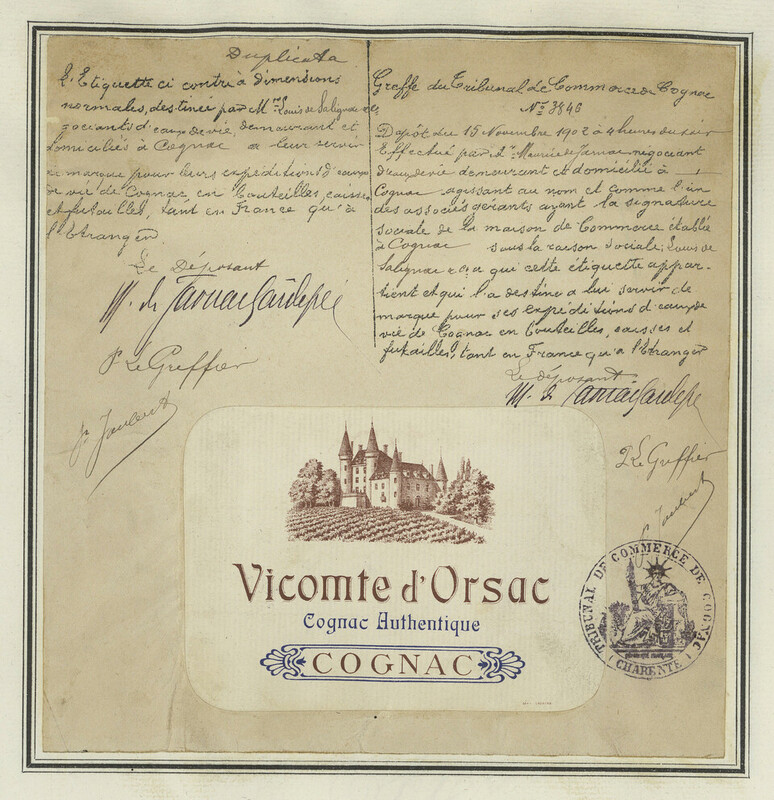 Duplicata
L'Etiquette ci contre à dimensions
normales, destinée par M. Louis de Salignac
gociants d'eaux de vie, demeurant et
domiciliés à Cognac a leur servir
marque pour leurs expéditions d'eaux
de vie de Cognac en bouteilles, caisses
et futailles, tant en France qu'à
l'Etranger
Le Déposant
M. de Jarnac Gardepée
P. Le Greffier
Jaubert
Greffe du Tribunal de Commerce de Cognac
No. 3846
Dépôt du 15 Novembre 1902 à 4 heures du soir
Effectué par Mr. Maurice de Jarnac négociant
d'eaux de vie demeurant et domicilié à
Cognac agissant au nom et comme l'un
des associés gérants ayant la signature
sociale de la maison de Commerce établie
à Cognac sous la raison sociale; Louis de
Salignac & Cie qui cette étiquette appar-
tient et qui l'a destine a lui servir de
marque pour ses expéditions d'eaux de
vie de Cognac en bouteilles, caisses et
futailles, tant en France qu'a l'Etranger
Le déposant
M. de Jarnac Gardepée
P. Le Greffier
Jaubert
Vicomte d'Orsac
Cognac Authentique
COGNAC
TRIBUNAL DE COMMERCE DE COGNAC
CHARENTE